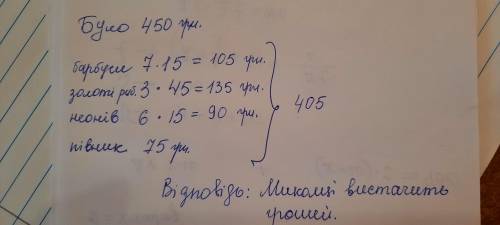 Було 450 грн.
барбуси 7 · 15 = 105 грн.
золоті риб. 3 · 45 = 135 грн.
неонів 6 · 15 = 90 грн.
405
півник 75 грн.
Відповідь: Миколці вистачить
грошей.